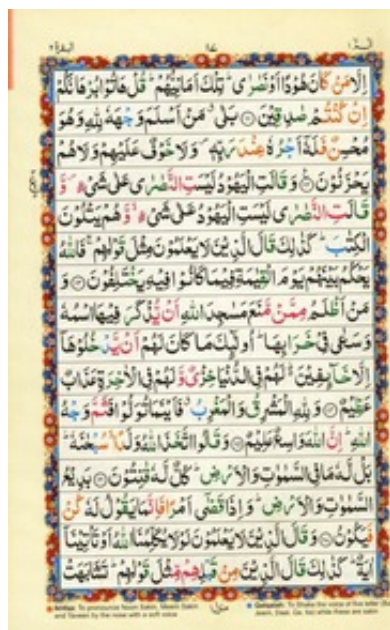 البقرة ٢ ١٧ الٓمّٓ ١
اِلَّا مَنْ كَانَ هُوْدًا اَوْ نَصٰرٰى ؕ تِلْكَ اَمَانِیُّهُمْ ؕ قُلْ هَاتُوْا بُرْهَانَكُمْ
اِنْ كُنْتُمْ صٰدِقِیْنَ ۝ بَلٰى ۗ مَنْ اَسْلَمَ وَجْهَهٗ لِلّٰهِ وَهُوَ
مُحْسِنٌ فَلَهٗۤ اَجْرُهٗ عِنْدَ رَبِّهٖ ۪ وَلَا خَوْفٌ عَلَیْهِمْ وَلَا هُمْ
یَحْزَنُوْنَ ۝ وَقَالَتِ الْیَهُوْدُ لَیْسَتِ النَّصٰرٰى عَلٰى شَیْءٍ ۪ وَّ
قَالَتِ النَّصٰرٰى لَیْسَتِ الْیَهُوْدُ عَلٰى شَیْءٍ ۙ وَّهُمْ یَتْلُوْنَ
الْكِتٰبَ ؕ كَذٰلِكَ قَالَ الَّذِیْنَ لَا یَعْلَمُوْنَ مِثْلَ قَوْلِهِمْ ۚ فَاللّٰهُ
یَحْكُمُ بَیْنَهُمْ یَوْمَ الْقِیٰمَةِ فِیْمَا كَانُوْا فِیْهِ یَخْتَلِفُوْنَ ۝ وَ
مَنْ اَظْلَمُ مِمَّنْ مَّنَعَ مَسٰجِدَ اللّٰهِ اَنْ یُّذْكَرَ فِیْهَا اسْمُهٗ
وَسَعٰى فِیْ خَرَابِهَا ؕ اُولٰٓئِكَ مَا كَانَ لَهُمْ اَنْ یَّدْخُلُوْهَاۤ
اِلَّا خَآئِفِیْنَ ؕ۬ لَهُمْ فِی الدُّنْیَا خِزْیٌ وَّلَهُمْ فِی الْاٰخِرَةِ عَذَابٌ
عَظِیْمٌ ۝ وَلِلّٰهِ الْمَشْرِقُ وَالْمَغْرِبُ ۗ فَاَیْنَمَا تُوَلُّوْا فَثَمَّ وَجْهُ
اللّٰهِ ؕ اِنَّ اللّٰهَ وَاسِعٌ عَلِیْمٌ ۝ وَقَالُوا اتَّخَذَ اللّٰهُ وَلَدًا ۙ سُبْحٰنَهٗ ؕ
بَلْ لَّهٗ مَا فِی السَّمٰوٰتِ وَالْاَرْضِ ؕ كُلٌّ لَّهٗ قٰنِتُوْنَ ۝ بَدِیْعُ
السَّمٰوٰتِ وَالْاَرْضِ ؕ وَاِذَا قَضٰۤى اَمْرًا فَاِنَّمَا یَقُوْلُ لَهٗ كُنْ
فَیَكُوْنُ ۝ وَقَالَ الَّذِیْنَ لَا یَعْلَمُوْنَ لَوْلَا یُكَلِّمُنَا اللّٰهُ اَوْ تَاْتِیْنَاۤ
اٰیَةٌ ؕ كَذٰلِكَ قَالَ الَّذِیْنَ مِنْ قَبْلِهِمْ مِّثْلَ قَوْلِهِمْ ؕ تَشَابَهَتْ
To pronounce Noon Sakin, Meem Sakin
and Tanveen by the nose with a soft voice
منزل ١
Qalqalah: To Shake the voice of five letter
while these are sakin